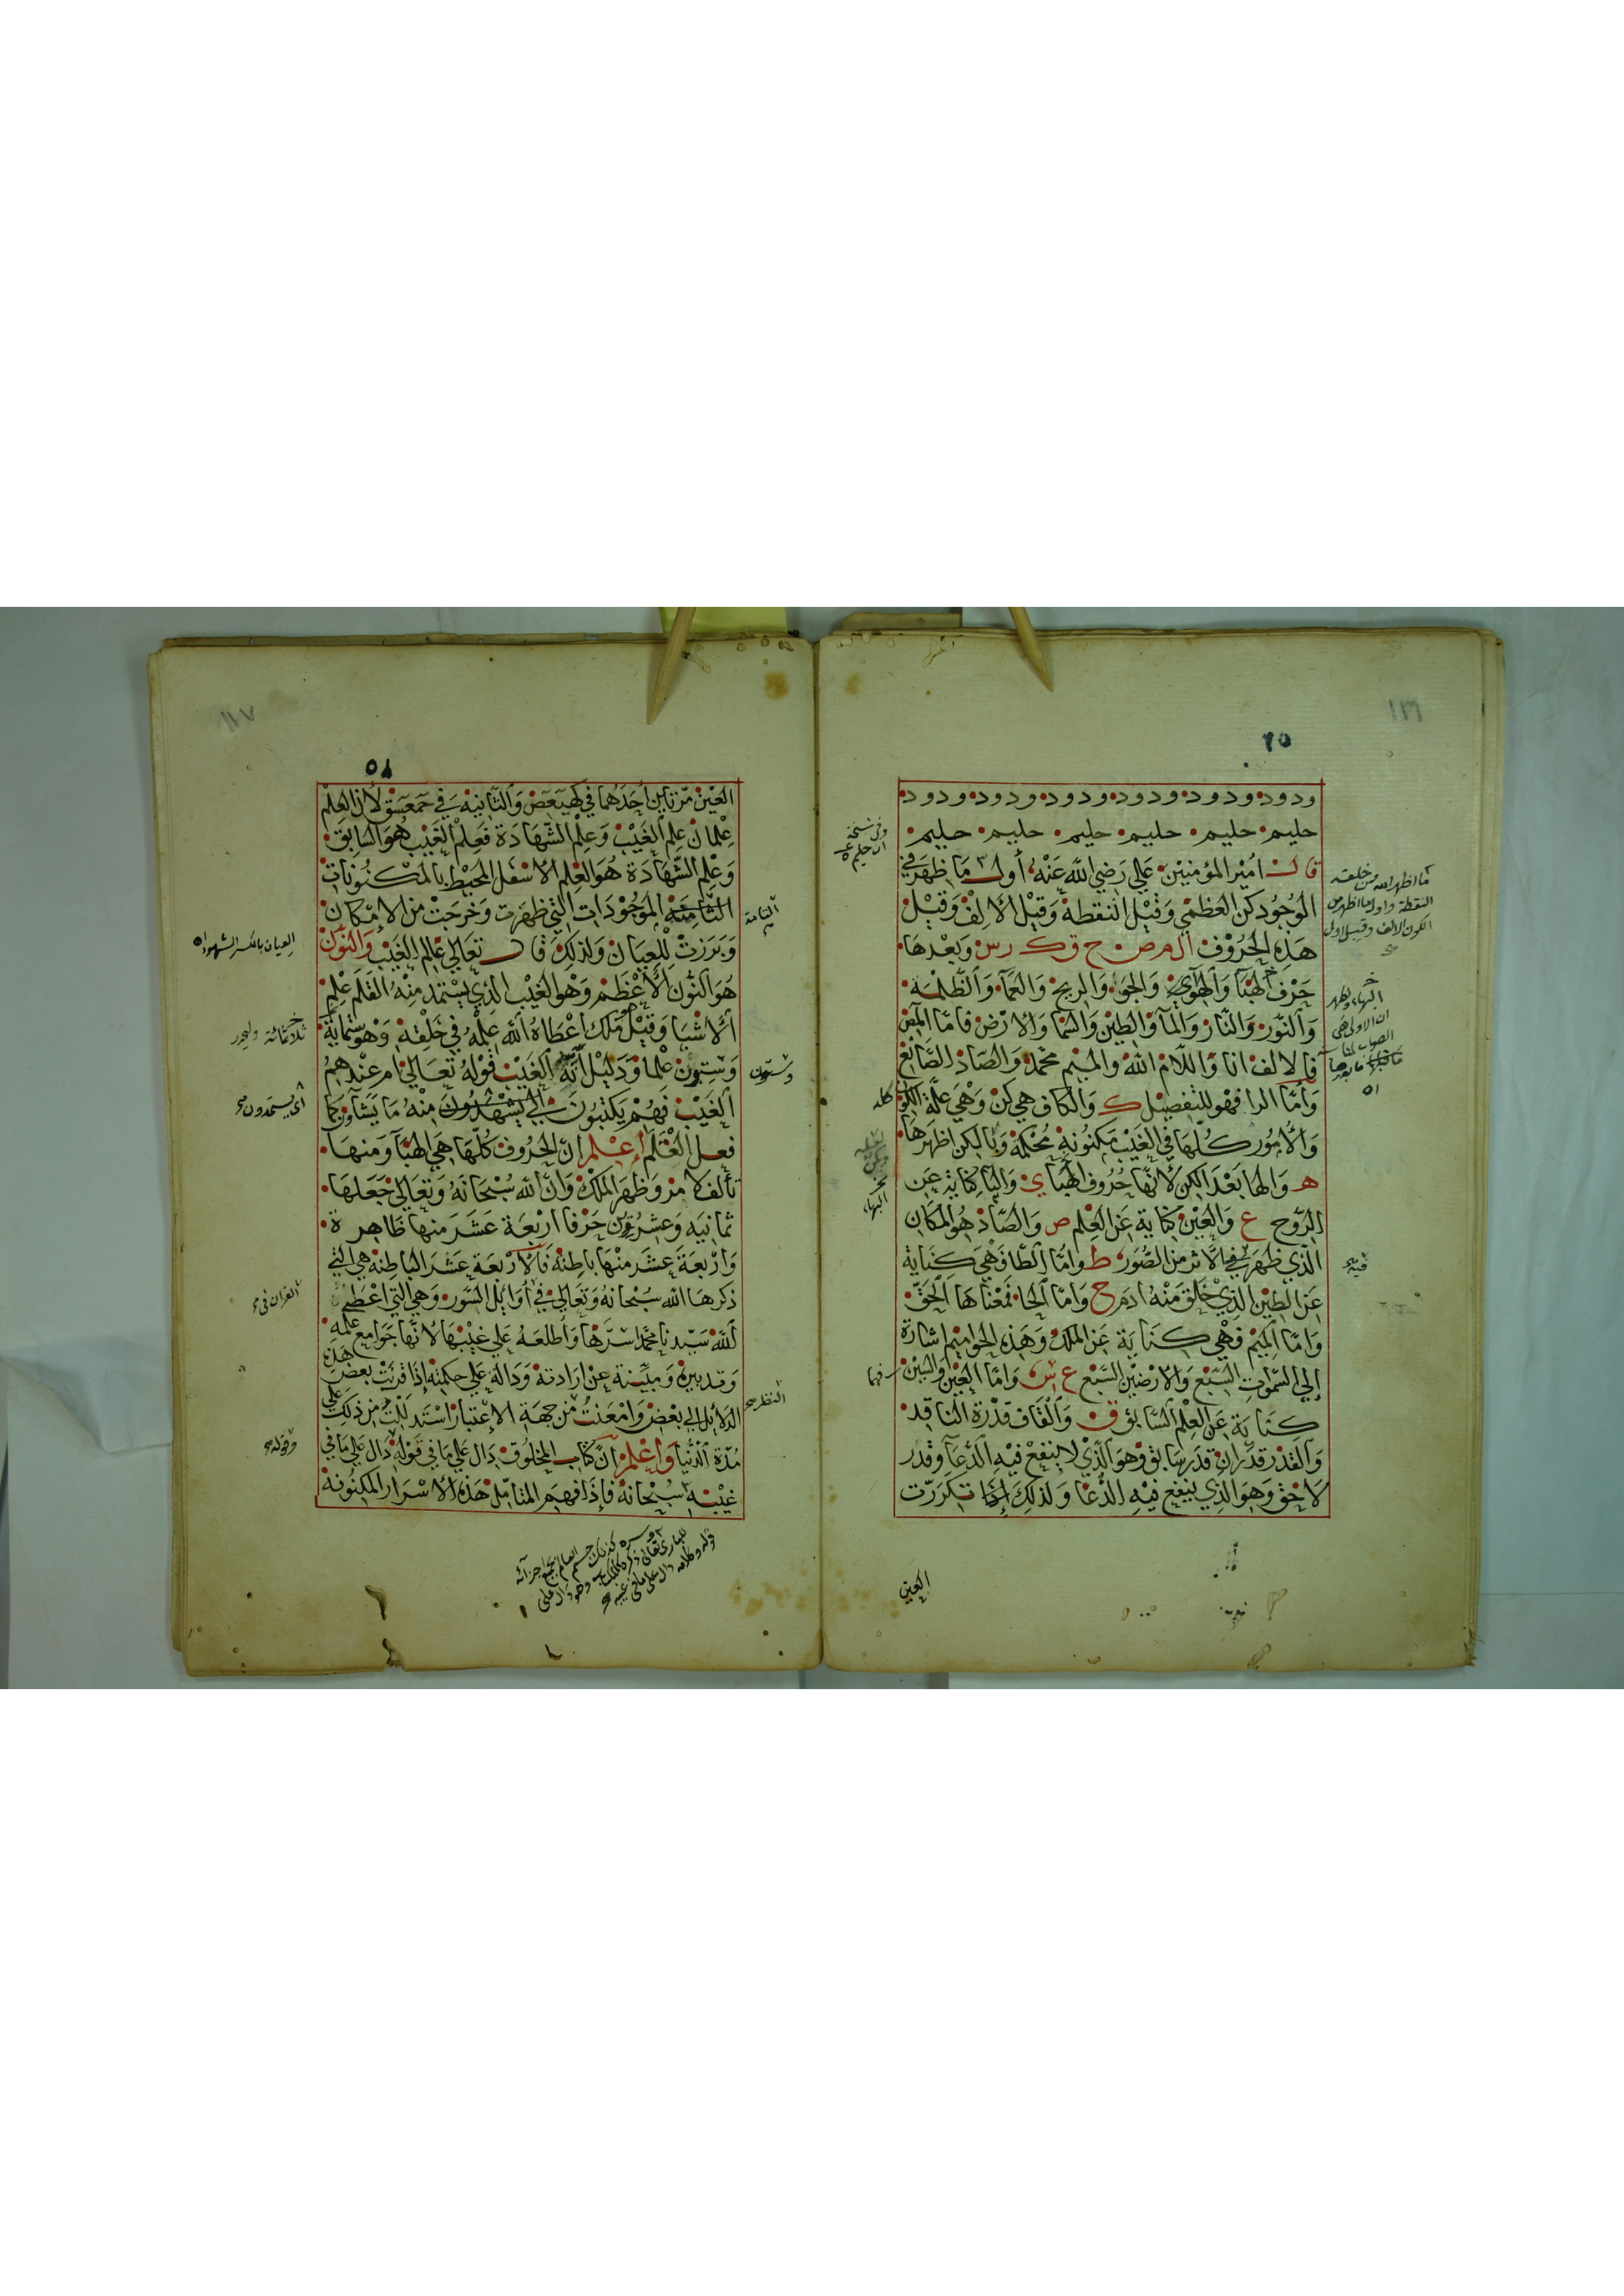 ١١٦
٢٥
ودود ودود ودود ودود ودود ودود ودود
حليم حليم حليم حليم حليم حليم
قال امير المؤمنين علي رضي الله عنه أول ما ظهر في
الوجود كن العظمي وقيل النقطة وقيل الالف وقيل
هذه الحروف ال م ص ح ق ك ر س وبعدها
حرف الهبآ والهوي والجو والريح والعمآ والظلمة
والنور والنار والمآ والطين والسما والارض فاما المص
فالالف انا واللام الله والميم محمد والصاد الصانع
واما الرا فهو للتفصيل ك والكاف هي كن وهي علة الكون
والامور كلها في الغيب مكنونة محكمة وبالكن اظهرها
هـ والها بعد الكن لانها حروف الهبا ي واليا كناية عن
الروح ع والعين كناية عن العلم ص والصاد هو المكان
الذي ظهرت فيه الاثر من الصور ط واما الطا فهي كناية
عن الطين الذي خلق منه ادم ح واما الحا فمعناها الحق
واما الميم فهي كناية عن الملك وهذه الحواميم اشارة
إلي السموات السبع والارضين السبع ع س واما العين والسين
كناية عن العلم السابق ق والقاف قدرة الناقد
والقدر قدران قدر سابق وهو الذي لا ينفع فيه الدعآ وقدر
لاحق وهو الذي ينفع فيه الدعا ولذلك تكررت
العين
ما اظهر الله من خلقه
النقطة واول ما اظهر من
الكون الالف وقيل اول
وفي نسخة
فيه
١١٧
العين مرتاين احدهما في كهيعص والثانية في حمعسق لان العلم
علمان علم الغيب وعلم الشهادة فعلم الغيب هو السابق
وعلم الشهادة هو العلم الاسفل المحيط بالمكنونات
الثامنة الموجودات التي ظهرت وخرجت من الامكان
وبرزت للعيان ولذلك قال تعالي عالم الغيب والنون
هو النون الأعظم وهو الغيب الذي يستمد منه القلم علم
الاشيا وقيل هو ملك اعطاه الله علمه في خلقه وهو ستماية
وستون علما ودليل انه الغيب قوله تعالي ام عندهم
الغيب فهم يكتبون اي يشهدون منه ما يشاون كما
فعل القلم إعلم ان الحروف كلها هي الهبآ ومنها
تألف كلامه وظهر الملك وان الله سبحانه وتعالي جعلها
ثمانيه وعشرون حرفا اربعة عشر منها ظاهرة
واربعة عشر منها باطنة فالاربعة عشر الباطنة هي التي
ذكرها الله سبحانه وتعالي في أوايل السور وهي التي اعطي
الله سيدنا محمد اسرها واطلعه علي غيبها لانها جوامع علمه
وتدبيره ومبينة عن ارادته ودالة علي حكمته إذا قرنت بعض هذه
الدلايل الي بعض وامعنت من جهة الاعتبار استدللت من ذلك علي
مدة الدنيا واعلم ان كتاب المخلوق دال علي ما في قوله دال علي ما في
غيبه سبحانه فاذا فهم المتأمل هذه الاسرار المكنونة
التامة
وستون
النظر
العيان بالكسر الشهود اه
ثلاثمائة وليحرر
اي يستمدون
القران في
وقوله